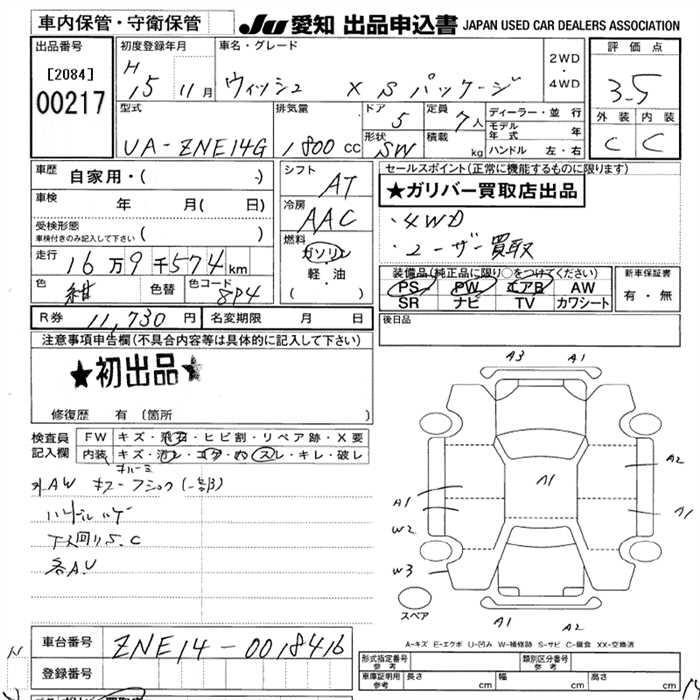 車内保管・守衛保管
JU 愛知 出品申込書 JAPAN USED CAR DEALERS ASSOCIATION
出品番号
[2084]
00217
初度登録年月
H 15 11月
車名・グレード
ウィッシュ X Sパッケージ
2WD
・
4WD
評価点
3.5
外装 内装
C C
型式
UA-ZNE14G
排気量
1800 CC
ドア
5
形状
SW
定員
7人
積載
kg
ディーラー・並行
モデル年式 年
ハンドル 左・右
車歴
自家用・( )
車検
年 月( 日)
受検形態
車検付きのみ記入して下さい ( )
走行
16万9千574km
色
紺
色替
色コード
8P4
シフト
AT
冷房
AAC
燃料
ガソリン
軽・油
( )
セールスポイント(正常に機能するものに限ります)
★ガリバー買取店出品
・4WD
・ユーザー買取
装備品(純正品に限り○をつけてください)
PS PW エアB AW
SR ナビ TV カワシート
新車保証書
有・無
R券 11,730円
名変期限 月 日
後日品
注意事項申告欄(不具合内容等は具体的に記入して下さい)
★初出品★
修復歴 有(箇所 )
検査員
記入欄
FW キズ・飛石・ヒビ割・リペア跡・X要
内装 キズ・コゲ・スレ・キレ・破レ
外AW キズ
ハンドルハゲ
下廻りS.C
各A.U
A3 A1
A2
A1
A1
A1
W2
W3
A1 A2
スペア
A-キズ E-エクボ U-凹み W-補修跡 S-サビ C-腐食 XX-交換済
車台番号
ZNE14-0018416
登録番号
型式指定番号
参考
類別区分番号
参考
車庫証明用
参考
長さ cm
幅 cm
高さ cm
N